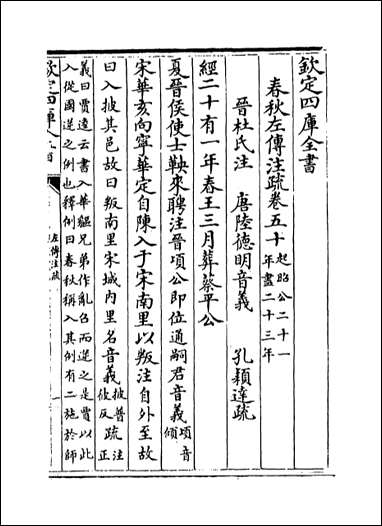 欽定四庫全書
春秋左傳注疏卷五十 起昭公二十一年盡二十三年
晉杜氏注 唐陸德明音義 孔穎達疏
經二十有一年春王三月葬蔡平公
夏晉侯使士鞅來聘注晉頃公即位通嗣君音義頃音傾
宋華亥向寧華定自陳入于宋南里以叛注自外至故
曰入披其邑故曰叛南里宋城内里名音義披普彼反疏注正
義曰賈逵云書入華貙兄弟作亂召而逆之是賈以此
入從國逆之例也釋例曰春秋稱入其例有二施於師
欽定四庫全書
左傳注疏